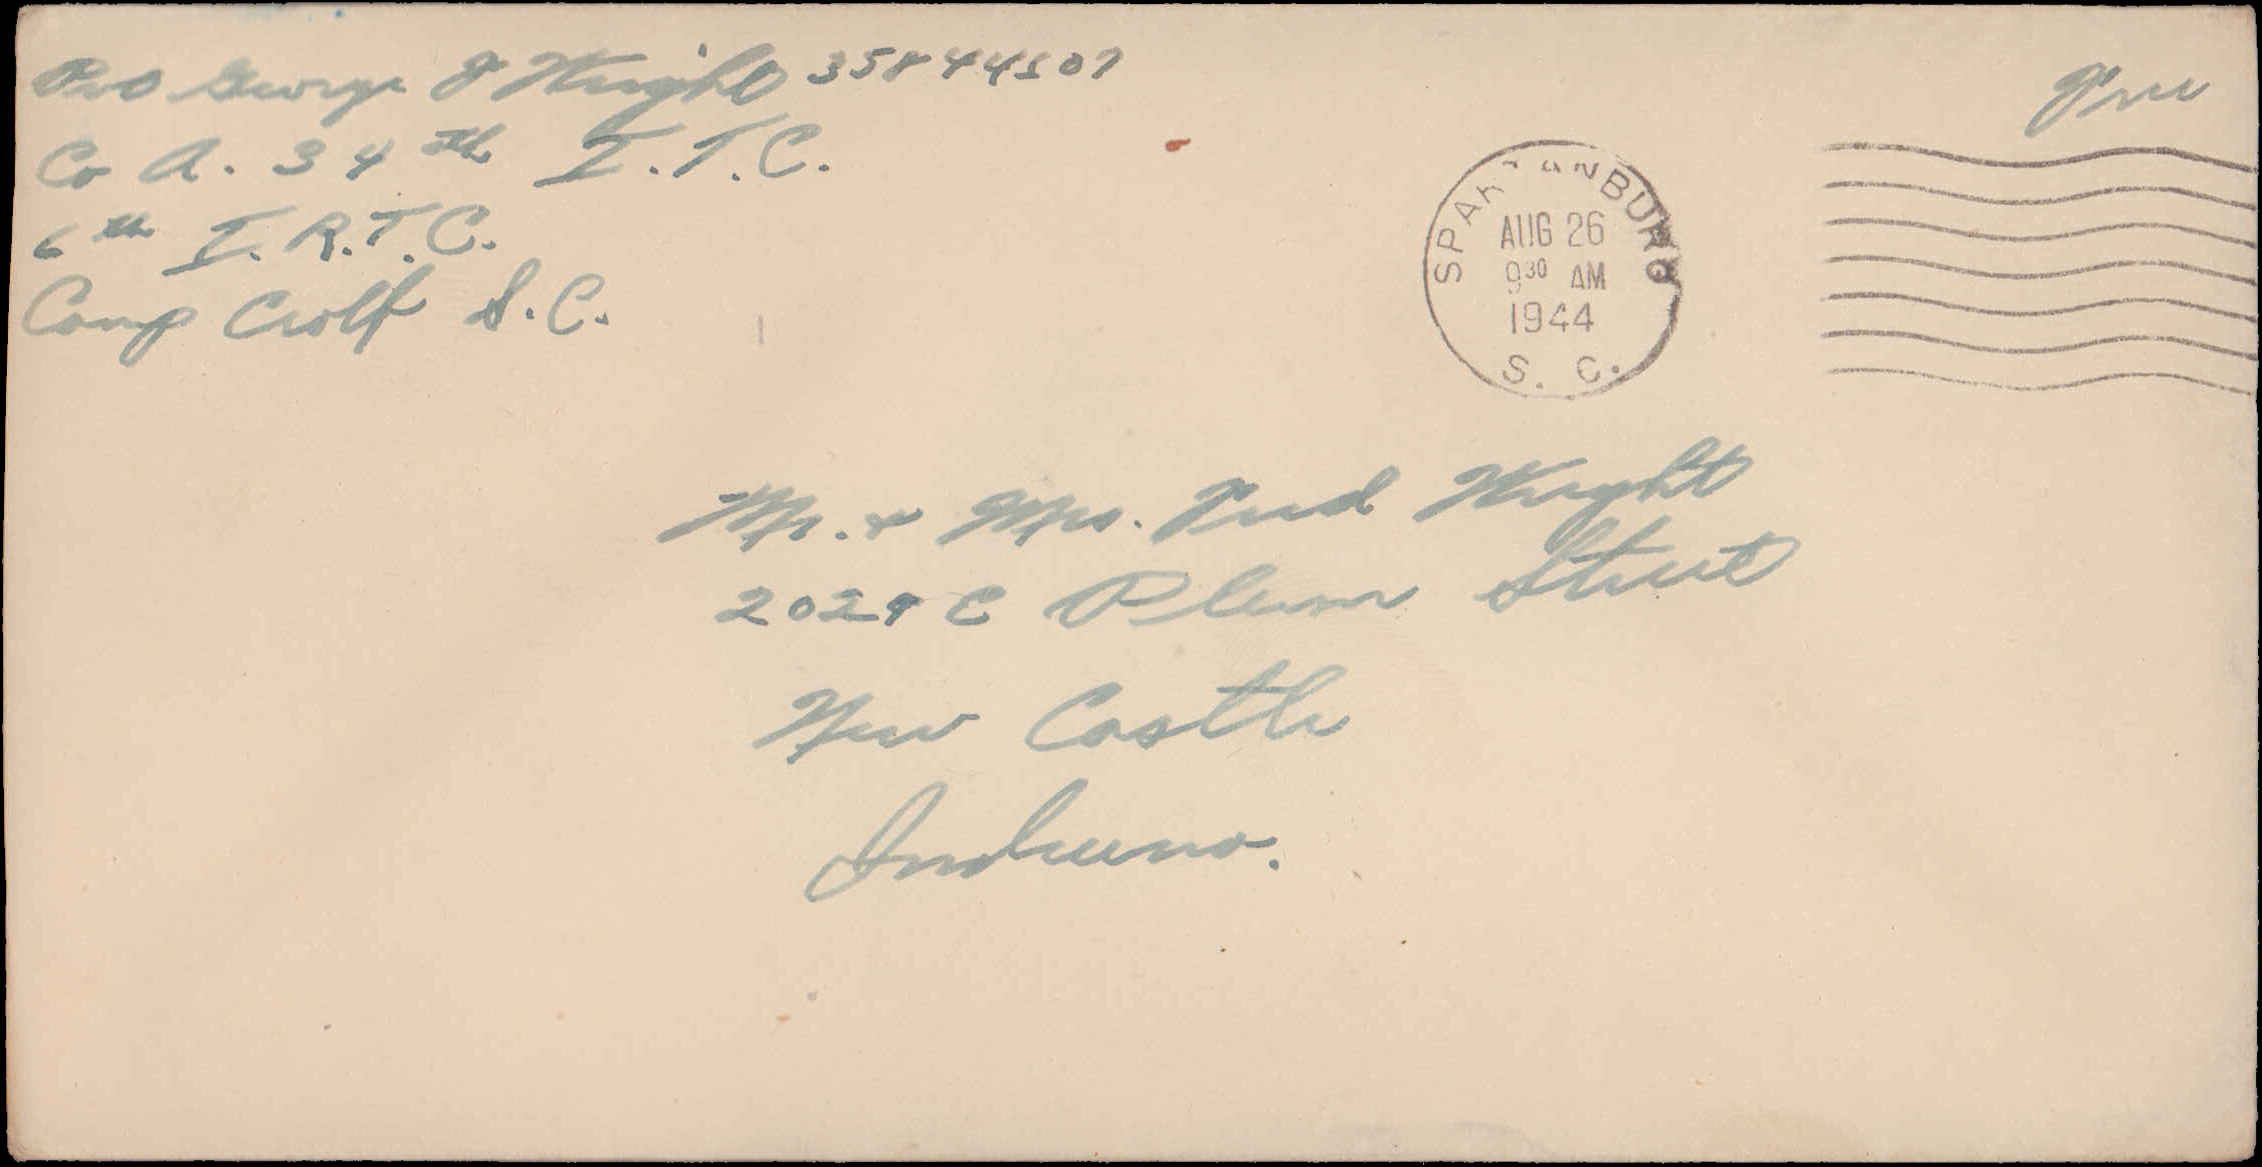 Pvt George J Wright 35844507
Co A. 34th I.T.C.
6th I.R.T.C.
Camp Croft S.C.
Free
SPARTANBURG
AUG 26
9 30 AM
1944
S. C.
Mr. & Mrs. Fred Wright
2029 C Plum Street
New Castle
Indiana.